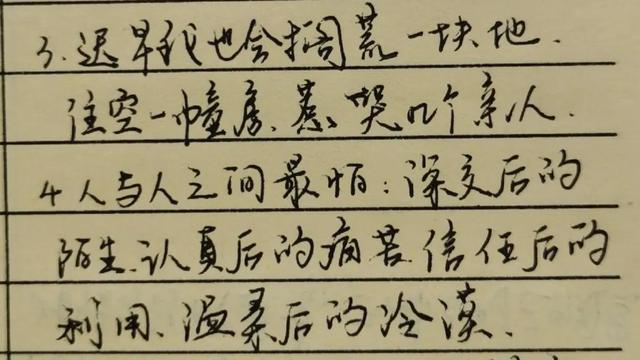 3.迟早我也会搁荒一块地.
住空一幢房、惹哭几个亲人.
4 人与人之间最怕:深交后的
陌生、认真后的痛苦 信任后的
利用、温柔后的冷漠.